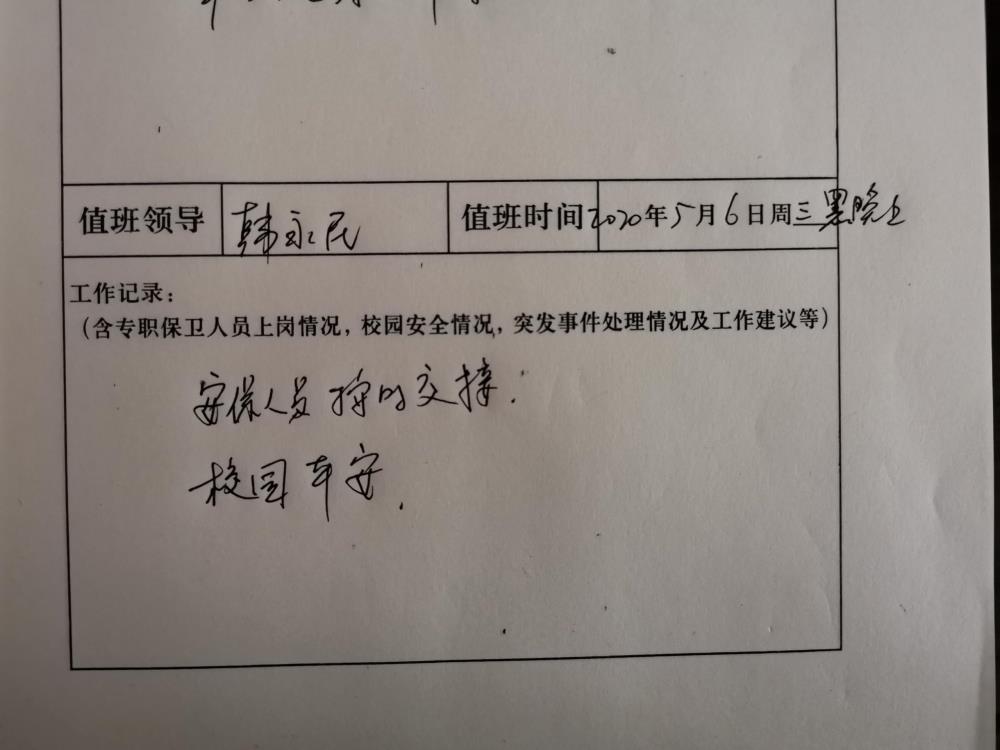 值班领导 韩永民 值班时间 2020年5月6日周三 晚上
工作记录：
（含专职保卫人员上岗情况，校园安全情况，突发事件处理情况及工作建议等）
安保人员按时交接.
校园平安.